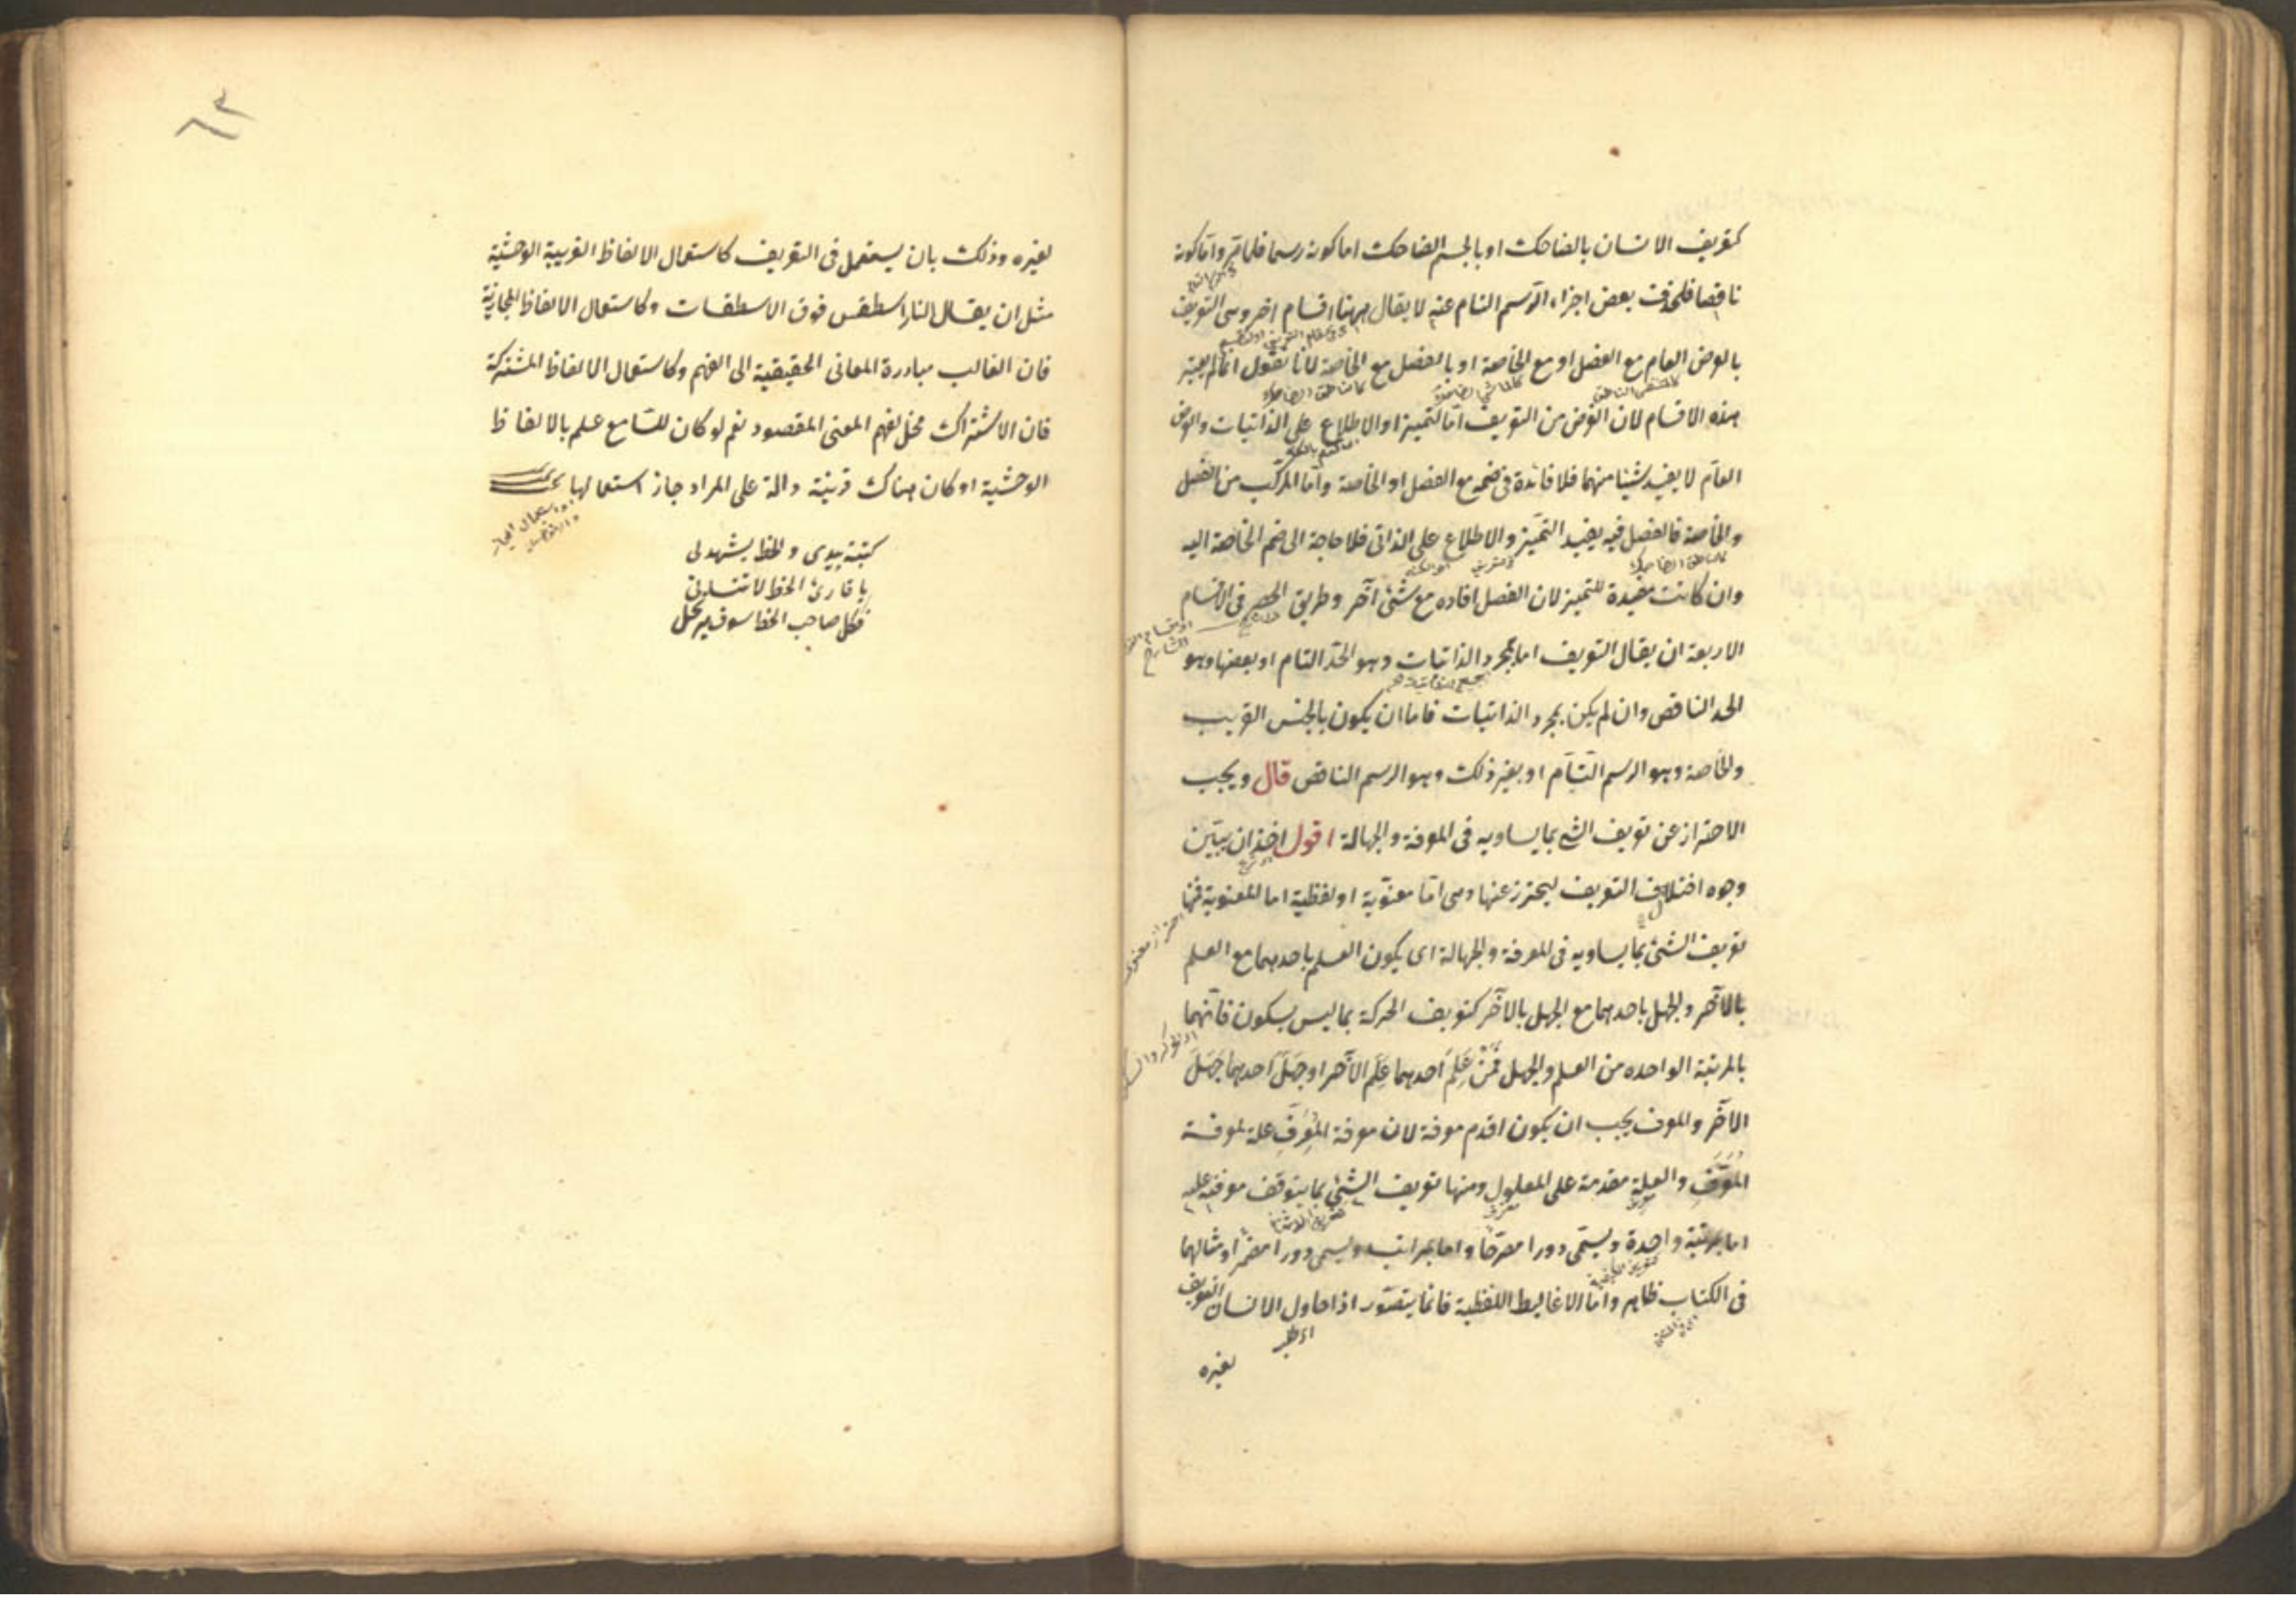 كتعريف الانسان بالضاحك او بالجسم الضاحك اما كونه رسما فلما مر واما كونه
ناقصا فلحذف بعض اجزاء الرسم التام عنه لا يقال ههنا اقسام اخر وهى التعريف
بالعرض العام مع الفصل او مع الخاصة او بالفصل مع الخاصة لانا نقول انما لم يعتبر
هذه الاقسام لان الغرض من التعريف اما التميز او الاطلاع على الذاتيات والعرض
العام لا يفيد شيئا منهما فلا فائدة فى ضمه مع الفصل او الخاصة واما المركب من الفصل
والخاصة فالفصل فيه يفيد التميز والاطلاع على الذاتى فلا حاجة الى ضم الخاصة اليه
وان كانت مفيدة للتميز لان الفصل افاده مع شئ آخر وطريق الحصر فى الاقسام
الاربعة ان يقال التعريف اما بمجرد الذاتيات وهو الحد التام او بعضها وهو
الحد الناقص وان لم يكن بمجرد الذاتيات فاما ان يكون بالجنس القريب
والخاصة وهو الرسم التام او بغير ذلك وهو الرسم الناقص قال ويجب
الاحتراز عن تعريف الشئ بما يساويه فى المعرفة والجهالة اقول اخذ ان يبين
وجوه اختلال التعريف ليحترز عنها وهى اما معنوية او لفظية اما المعنوية فمنها
تعريف الشئ بما يساويه فى المعرفة والجهالة اى يكون العلم باحدهما مع العلم
بالآخر والجهل باحدهما مع الجهل بالآخر كتعريف الحركة بما ليس بسكون فانهما
بالمرتبة الواحده من العلم والجهل فمن عَلِمَ احدهما عَلِمَ الآخر او جهل احدهما جهل
الآخر والمعرف يجب ان يكون اقدم معرفة لان معرفة المعرِّف علة لمعرفة
المعرَّف والعلة مقدمة على المعلول ومنها تعريف الشئ بما يتوقف معرفته عليه
اما بمرتبة واحدة ويسمى دورا مصرحا واما بمراتب ويسمى دورا مضمرا ومثالهما
فى الكتاب ظاهر واما الاغاليط اللفظية فانما يتصور اذا حاول الانسان التعريف
لغيره
احتراز معنوى
٦٣
لغيره وذلك بان يستعمل فى التعريف كاستعمال الالفاظ الغريبة الوحشية
مثل ان يقال النار اسطقس فوق الاسطقسات وكاستعمال الالفاظ المجازية
فان الغالب مبادرة المعانى الحقيقية الى الفهم وكاستعمال الالفاظ المشتركة
فان الاشتراك مخل لفهم المعنى المقصود نعم لو كان للسامع علم بالالفاظ
الوحشية او كان هناك قرينة دالة على المراد جاز استعمالها
كتبته بيدى والخط يشهد لى
يا قارئ الخط لا تنسانى
فكل صاحب الخط سوف يرحل